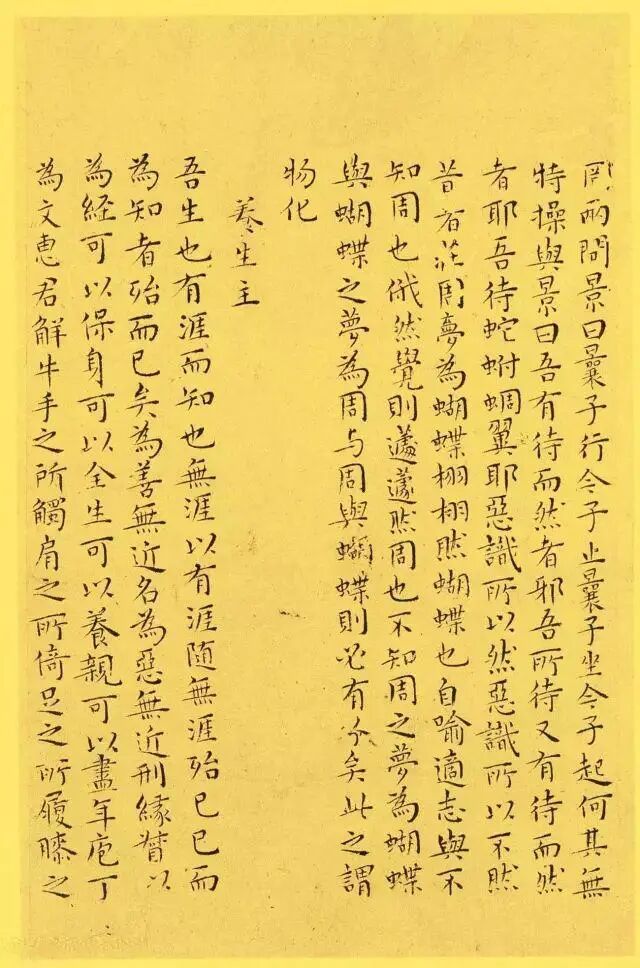 罔兩問景曰曩子行今子止曩子坐今子起何其無
特操與景曰吾有待而然者邪吾所待又有待而然
者耶吾待蛇蚹蜩翼耶惡識所以然惡識所以不然
昔者莊周夢為蝴蝶栩栩然蝴蝶也自喻適志與不
知周也俄然覺則蘧蘧然周也不知周之夢為蝴蝶
與蝴蝶之夢為周与周與蝴蝶則必有分矣此之謂
物化
養生主
吾生也有涯而知也無涯以有涯隨無涯殆已已而
為知者殆而已矣為善無近名為惡無近刑緣督以
為經可以保身可以全生可以養親可以盡年庖丁
為文惠君解牛手之所觸肩之所倚足之所履膝之